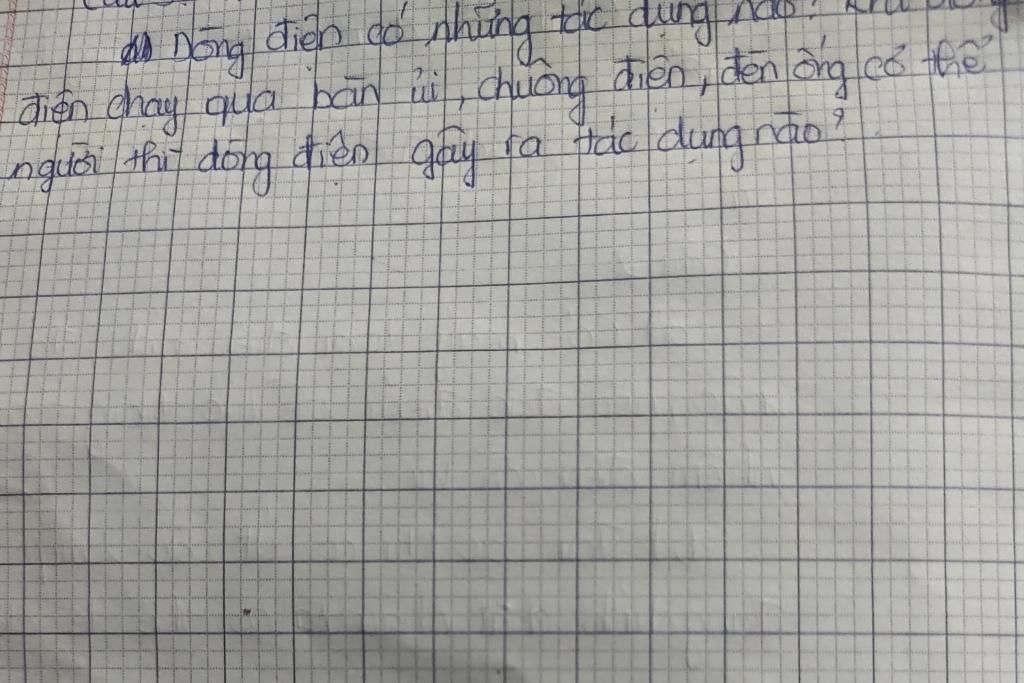 Dòng điện có những tác dụng nào? Khi dòng
điện chạy qua bàn ủi, chuông điện, đèn ống cơ thể
người thì dòng điện gây ra tác dụng nào?